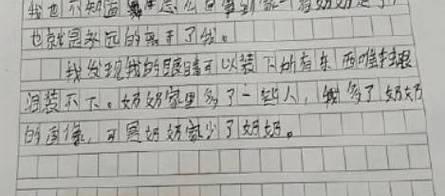 我也不知道怎么回事到家一看奶奶走了，
也就是永远的离开了我。
我发现我的眼睛可以装下所有东西唯独眼
泪装不下。奶奶家里多了一些人，我多了奶奶
的画像，可是奶奶家少了奶奶。